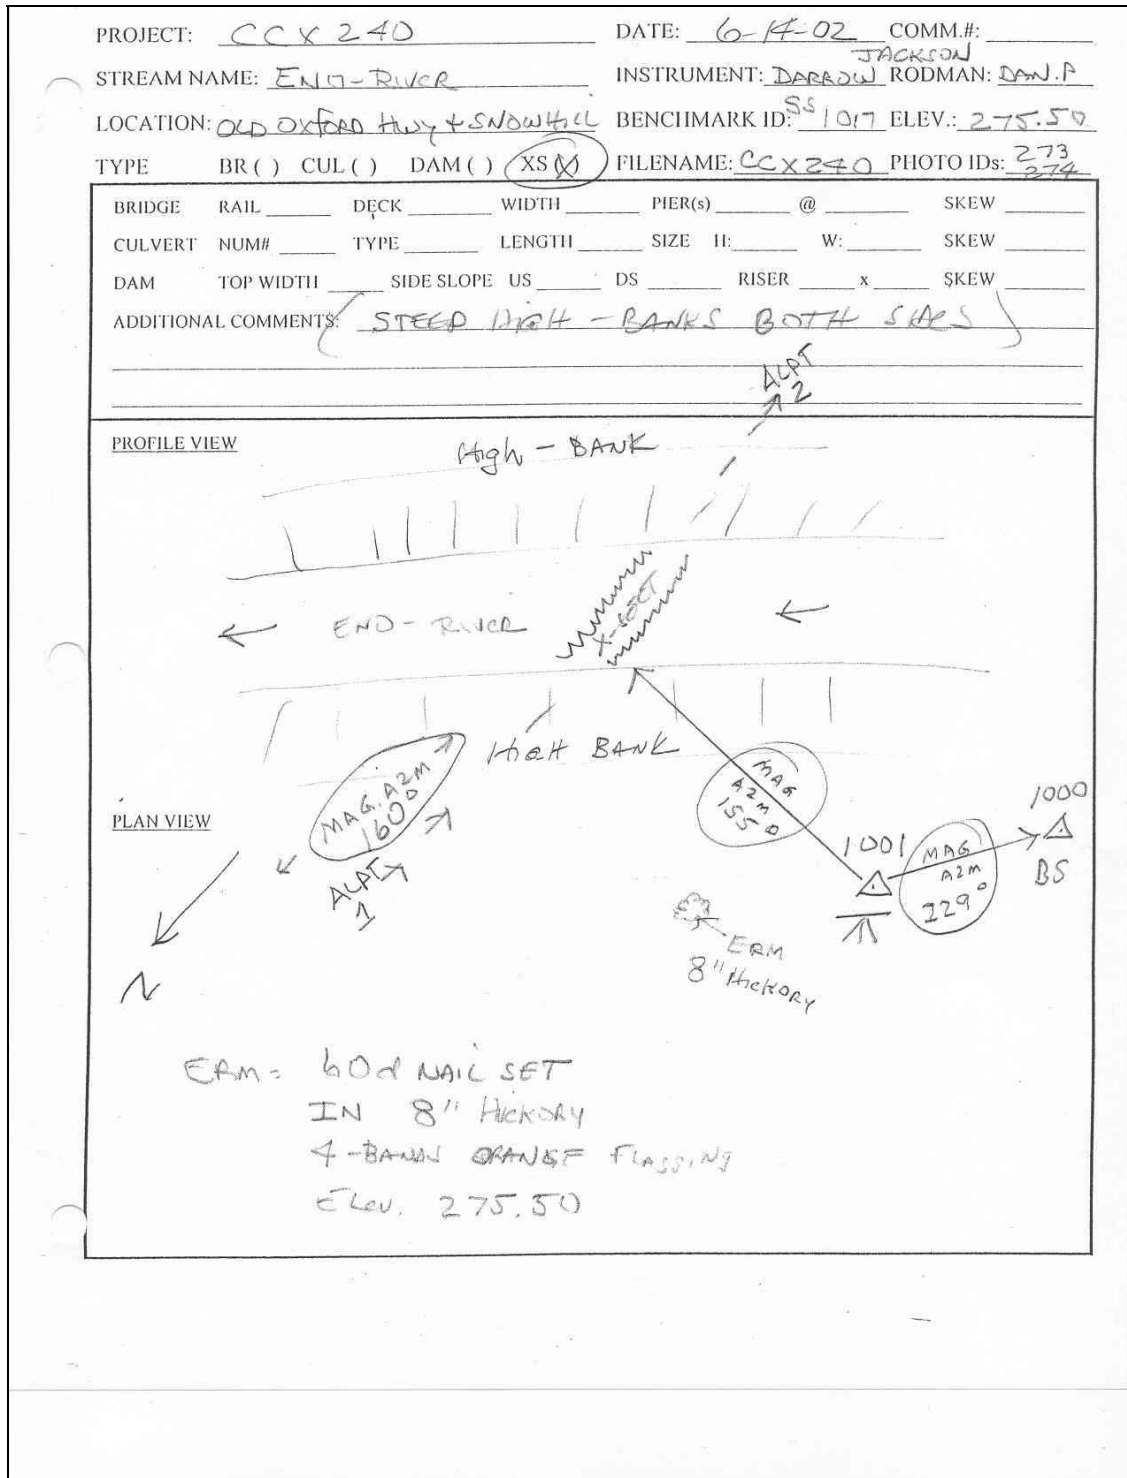 PROJECT: CCX 240 DATE: 6-14-02 COMM.#:
JACKSON
STREAM NAME: ENO-RIVER INSTRUMENT: DARROW RODMAN: DAN.P
LOCATION: OLD OXFORD HWY + SNOWHILL BENCHMARK ID: SS 1017 ELEV.: 275.50
TYPE BR ( ) CUL ( ) DAM ( ) XS (X) FILENAME: CCX240 PHOTO IDs: 273
274
BRIDGE RAIL DECK WIDTH PIER(s) @ SKEW
CULVERT NUM# TYPE LENGTH SIZE H: W: SKEW
DAM TOP WIDTH SIDE SLOPE US DS RISER x SKEW
ADDITIONAL COMMENTS: STEEP HIGH - BANKS BOTH SIDES
ALPT
2
PROFILE VIEW
High - BANK
X-SECT
ENO - RIVER
HIGH BANK
MAG. AZM
160°
ALPT
1
MAG
AZM
155°
PLAN VIEW
1000
1001
MAG
AZM
229°
BS
N
ERM
8" HICKORY
ERM = 60d NAIL SET
IN 8" HICKORY
4-BANDS ORANGE FLAGGING
ELEV. 275.50